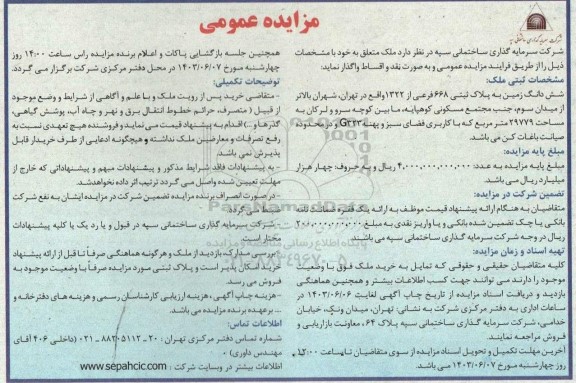 مزایده عمومی
شرکت سرمایه گذاری ساختمانی سپه در نظر دارد ملک متعلق به خود با مشخصات
ذیل را از طریق فرایند مزایده عمومی و به صورت نقد و اقساط واگذار نماید:
مشخصات ثبتی ملک:
شش دانگ زمین به پلاک ثبتی ۶۶۸ فرعی از ۱۳۲۲ واقع در تهران، شهران بالاتر
از میدان سوم، جنب مجتمع مسکونی کوهپایه، مابین کوچه سرو و لرکان به
مساحت ۲۹۷۷۹ متر مربع که با کاربری فضای سبز و پهنه G۲۲۳ و در محدوده
صیانت باغات کن می باشد.
مبلغ پایه مزایده:
مبلغ پایه مزایده به عدد ۴,۰۰۰,۰۰۰,۰۰۰,۰۰۰ ریال و به حروف: چهار هزار
میلیارد ریال می باشد.
تضمین شرکت در مزایده:
متقاضیان به هنگام ارائه پیشنهاد قیمت موظف به ارائه یک فقره ضمانت نامه
بانکی یا چک تضمین شده بانکی و یا واریز نقدی به مبلغ ۲۰۰,۰۰۰,۰۰۰,۰۰۰
ریال در وجه شرکت سرمایه گذاری ساختمانی سپه می باشد.
تهیه اسناد و زمان مزایده:
کلیه متقاضیان حقیقی و حقوقی که تمایل به خرید ملک فوق با وضعیت
موجود را دارند می توانند جهت کسب اطلاعات بیشتر و همچنین هماهنگی
بازدید و دریافت اسناد مزایده از تاریخ چاپ آگهی لغایت ۱۴۰۳/۰۶/۰۶ در
ساعات اداری به دفتر مرکزی شرکت به نشانی: تهران، میدان ونک، خیابان
خدامی، شرکت سرمایه گذاری ساختمانی سپه پلاک ۶۴، معاونت بازاریابی و
فروش مراجعه نمایند.
آخرین مهلت تکمیل و تحویل اسناد مزایده از سوی متقاضیان تا ساعت ۱۲:۰۰
روز چهارشنبه مورخ ۱۴۰۳/۰۶/۰۷ می باشد.
همچنین جلسه بازگشایی پاکات و اعلام برنده مزایده راس ساعت ۱۴:۰۰ روز
چهارشنبه مورخ ۱۴۰۳/۰۶/۰۷ در محل دفتر مرکزی شرکت برگزار می گردد.
توضیحات تکمیلی:
- متقاضی خرید پس از رویت ملک و با علم و آگاهی از شرایط و وضع موجود
از قبیل ( متصرف، حرائم خطوط انتقال برق و نهر و چاه آب، پوشش گیاهی،
گذرها و ...) اقدام به پیشنهاد قیمت می نماید و فروشنده هیچ تعهدی نسبت به
رفع تصرفات و معارضین ملک نداشته و هیچگونه ادعایی از طرف خریدار قابل
پذیرش نمی باشد.
- به پیشنهادات فاقد شرایط مذکور و پیشنهادات مبهم و پیشنهاداتی که خارج از
مهلت تعیین شده واصل می گردد ترتیب اثر داده نخواهد شد.
- در صورت انصراف برنده مزایده تضمین شرکت در مزایده ایشان به نفع شرکت
ضبط می گردد.
- شرکت سرمایه گذاری ساختمانی سپه در قبول و یا رد یک یا کلیه پیشنهادات
مختار است.
- بررسی مدارک، بازدید از ملک و هرگونه هماهنگی صرفاً تا قبل از ارائه پیشنهاد
خرید امکان پذیر است و پلاک ثبتی مورد مزایده صرفاً با وضعیت موجود به
فروش می رسد.
- هزینه چاپ آگهی، هزینه ارزیابی کارشناسان رسمی و هزینه های دفترخانه و
... برعهده برنده مزایده می باشد.
اطلاعات تماس:
شماره تماس دفتر مرکزی تهران: ۲۰ - ۸۸۲۰۵۱۱۲ - ۰۲۱ (داخلی ۴۰۶ آقای
مهندس داوری) .
اطلاعات بیشتر در وبسایت شرکت : www.sepahcic.com